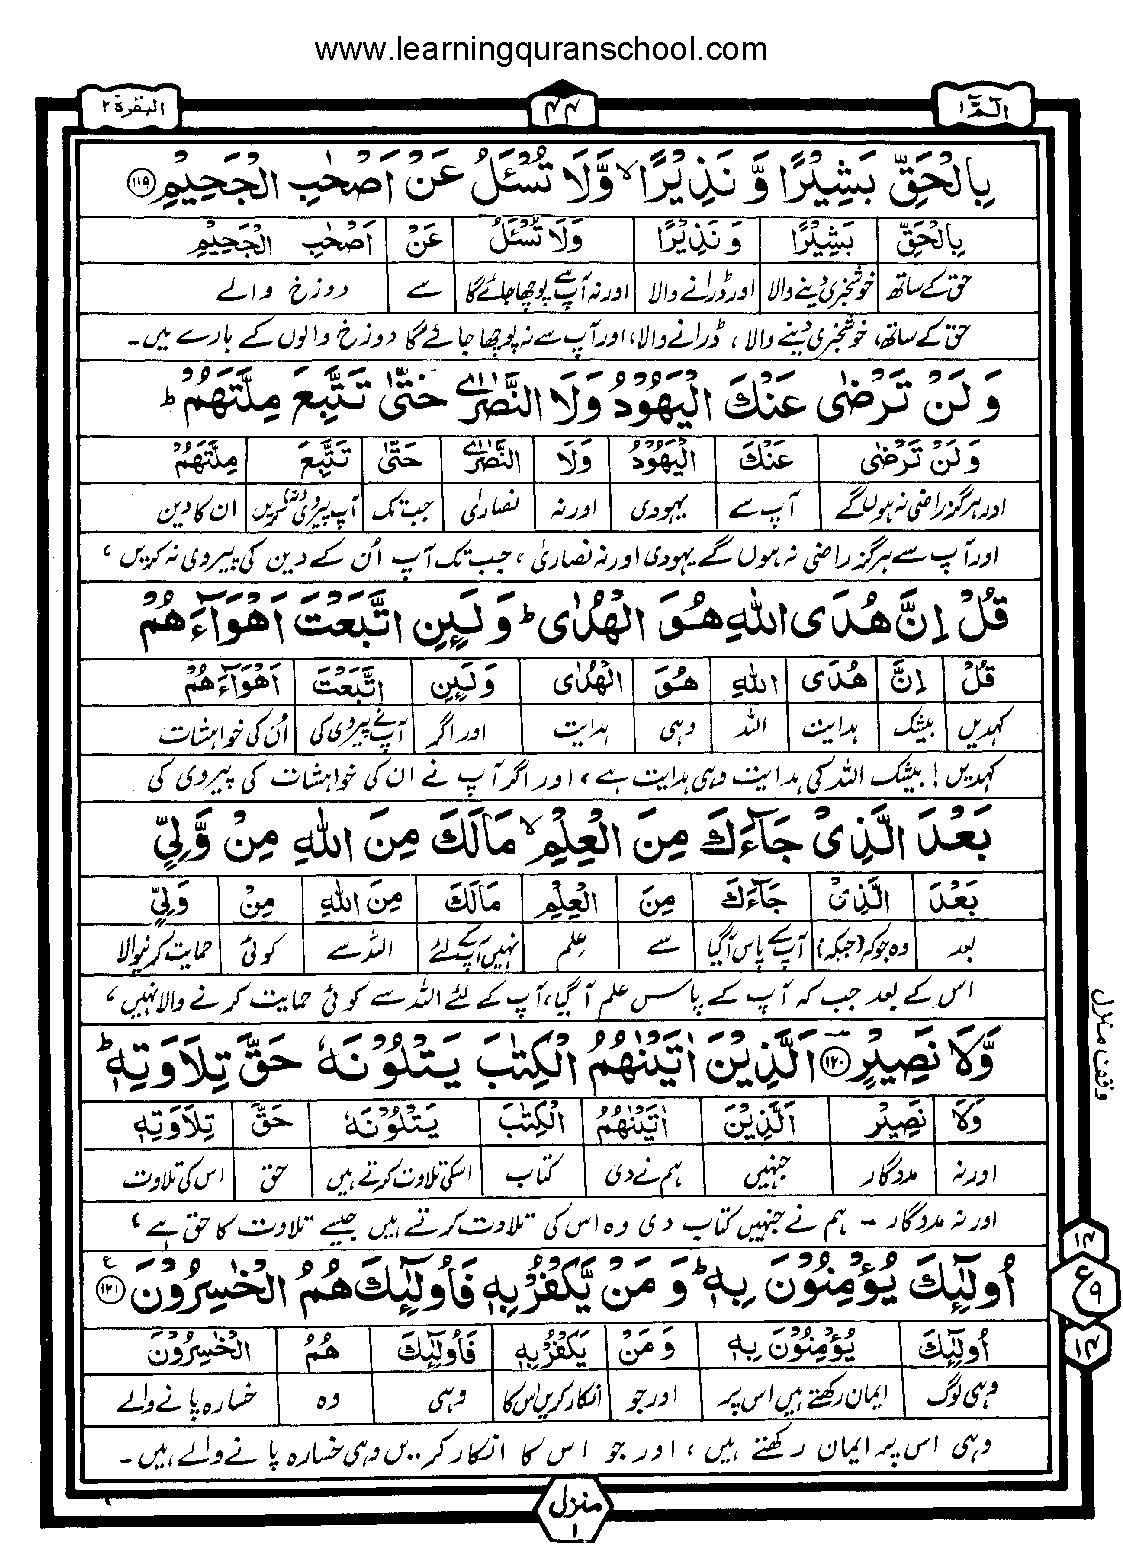 www.learningquranschool.com
الٓمّٓ ۱
۴۴
البقرة ۲
بِالْحَقِّ بَشِيْرًا وَّ نَذِيْرًا ۙ وَّلَا تُسْئَلُ عَنْ اَصْحٰبِ الْجَحِيْمِ ﴿۱۱۹﴾
بِالْحَقِّ بَشِيْرًا وَ نَذِيْرًا وَلَا تُسْئَلُ عَنْ اَصْحٰبِ الْجَحِيْمِ
حق کے ساتھ خوشخبری دینے والا اور ڈرانے والا اور نہ آپ سے پوچھا جائے گا سے دوزخ والے
حق کے ساتھ، خوشخبری دینے والا، ڈرانے والا، اور آپ سے نہ پوچھا جائے گا دوزخ والوں کے بارے میں۔
وَ لَنْ تَرْضٰى عَنْكَ الْيَهُوْدُ وَلَا النَّصٰرٰى حَتّٰى تَتَّبِعَ مِلَّتَهُمْ ؕ
وَ لَنْ تَرْضٰى عَنْكَ الْيَهُوْدُ وَلَا النَّصٰرٰى حَتّٰى تَتَّبِعَ مِلَّتَهُمْ
اور ہرگز راضی نہ ہوں گے آپ سے یہودی اور نہ نصاریٰ جب تک آپ پیروی نہ کریں ان کا دین
اور آپ سے ہرگز راضی نہ ہوں گے یہودی اور نہ نصاریٰ، جب تک آپ اُن کے دین کی پیروی نہ کریں،
قُلْ اِنَّ هُدَى اللّٰهِ هُوَ الْهُدٰى ؕ وَ لَئِنِ اتَّبَعْتَ اَهْوَآءَهُمْ
قُلْ اِنَّ هُدَى اللّٰهِ هُوَ الْهُدٰى وَ لَئِنِ اتَّبَعْتَ اَهْوَآءَهُمْ
کہدیں بیشک ہدایت اللہ وہی ہدایت اور اگر آپ نے پیروی کی اُن کی خواہشات
کہدیں! بیشک اللہ کی ہدایت وہی ہدایت ہے، اور اگر آپ نے ان کی خواہشات کی پیروی کی
بَعْدَ الَّذِيْ جَآءَكَ مِنَ الْعِلْمِ ۙ مَا لَكَ مِنَ اللّٰهِ مِنْ وَّلِيٍّ
بَعْدَ الَّذِيْ جَآءَكَ مِنَ الْعِلْمِ مَا لَكَ مِنَ اللّٰهِ مِنْ وَلِيٍّ
بعد وہ جو کہ (جبکہ) آپ کے پاس آ گیا سے علم نہیں آپ کے لئے اللہ سے کوئی حمایت کرنیوالا
اس کے بعد جب کہ آپ کے پاس علم آ گیا، آپ کے لئے اللہ سے کوئی حمایت کرنے والا نہیں،
وَّلَا نَصِيْرٍ ﴿۱۲۰﴾ اَلَّذِيْنَ اٰتَيْنٰهُمُ الْكِتٰبَ يَتْلُوْنَهٗ حَقَّ تِلَاوَتِهٖ ؕ
وَلَا نَصِيْرٍ اَلَّذِيْنَ اٰتَيْنٰهُمُ الْكِتٰبَ يَتْلُوْنَهٗ حَقَّ تِلَاوَتِهٖ
اور نہ مددگار جنہیں ہم نے دی کتاب اسکی تلاوت کرتے ہیں حق اس کی تلاوت
اور نہ مددگار۔ ہم نے جنہیں کتاب دی وہ اس کی تلاوت کرتے ہیں جیسے تلاوت کا حق ہے،
اُولٰٓئِكَ يُؤْمِنُوْنَ بِهٖ ؕ وَ مَنْ يَّكْفُرْ بِهٖ فَاُولٰٓئِكَ هُمُ الْخٰسِرُوْنَ ﴿۱۲۱﴾ ع
اُولٰٓئِكَ يُؤْمِنُوْنَ بِهٖ وَ مَنْ يَكْفُرْ بِهٖ فَاُولٰٓئِكَ هُمُ الْخٰسِرُوْنَ
وہی لوگ ایمان رکھتے ہیں اس پر اور جو انکار کریں اس کا وہی وہ خسارہ پانے والے
وہی اس پر ایمان رکھتے ہیں، اور جو اس کا انکار کریں وہی خسارہ پانے والے ہیں۔
وقف منزل
۱۴
ع
۹
۱۴
منزل
۱